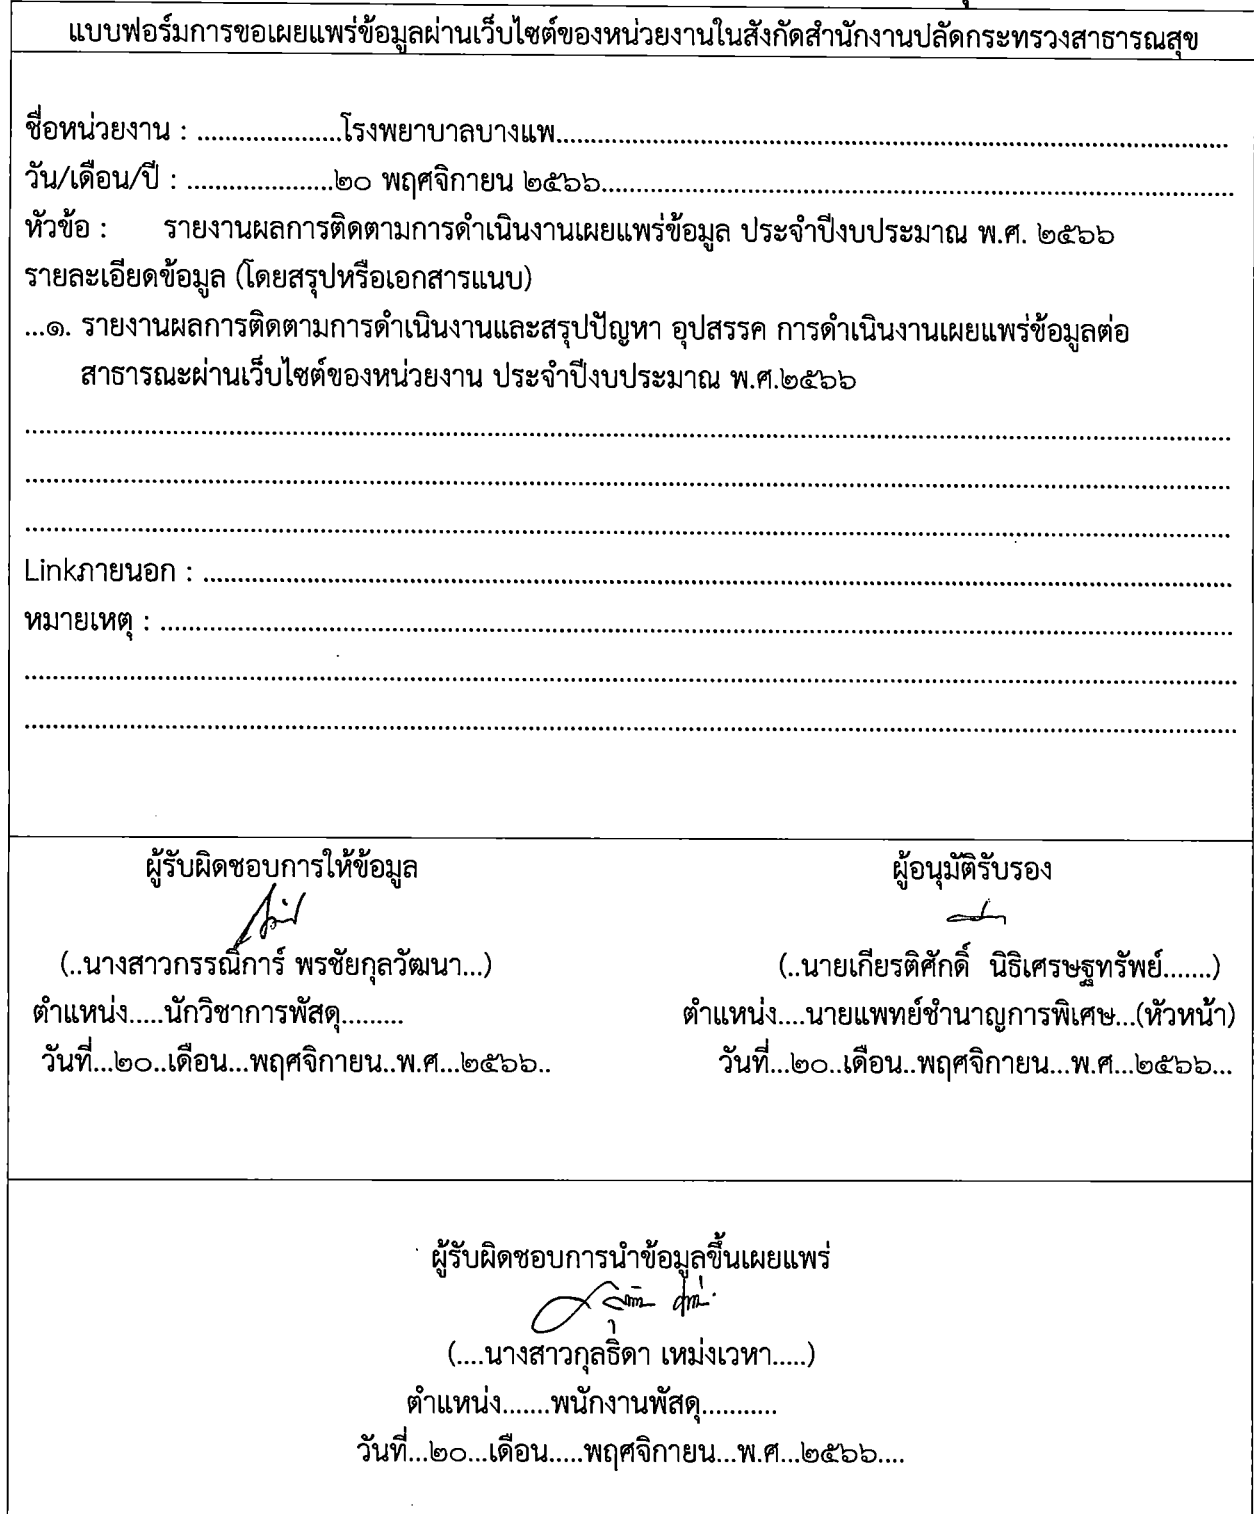 แบบฟอร์มการขอเผยแพร่ข้อมูลผ่านเว็บไซต์ของหน่วยงานในสังกัดสำนักงานปลัดกระทรวงสาธารณสุข
ชื่อหน่วยงาน : .....................โรงพยาบาลบางแพ...................................................................................................
วัน/เดือน/ปี : .....................๒๐ พฤศจิกายน ๒๕๖๖.............................................................................................
หัวข้อ : รายงานผลการติดตามการดำเนินงานเผยแพร่ข้อมูล ประจำปีงบประมาณ พ.ศ. ๒๕๖๖
รายละเอียดข้อมูล (โดยสรุปหรือเอกสารแนบ)
...๑. รายงานผลการติดตามการดำเนินงานและสรุปปัญหา อุปสรรค การดำเนินงานเผยแพร่ข้อมูลต่อ
สาธารณะผ่านเว็บไซต์ของหน่วยงาน ประจำปีงบประมาณ พ.ศ.๒๕๖๖
Linkภายนอก : ......................................................................................................................................................
หมายเหตุ : ............................................................................................................................................................
ผู้รับผิดชอบการให้ข้อมูล
(..นางสาวกรรณิการ์ พรชัยกุลวัฒนา...)
ตำแหน่ง.....นักวิชาการพัสดุ.........
วันที่...๒๐..เดือน...พฤศจิกายน..พ.ศ...๒๕๖๖..
ผู้อนุมัติรับรอง
(..นายเกียรติศักดิ์ นิธิเศรษฐทรัพย์.......)
ตำแหน่ง....นายแพทย์ชำนาญการพิเศษ...(หัวหน้า)
วันที่...๒๐..เดือน..พฤศจิกายน...พ.ศ...๒๕๖๖...
ผู้รับผิดชอบการนำข้อมูลขึ้นเผยแพร่
(....นางสาวกุลธิดา เหม่งเวหา.....)
ตำแหน่ง.......พนักงานพัสดุ...........
วันที่...๒๐...เดือน.....พฤศจิกายน...พ.ศ...๒๕๖๖....